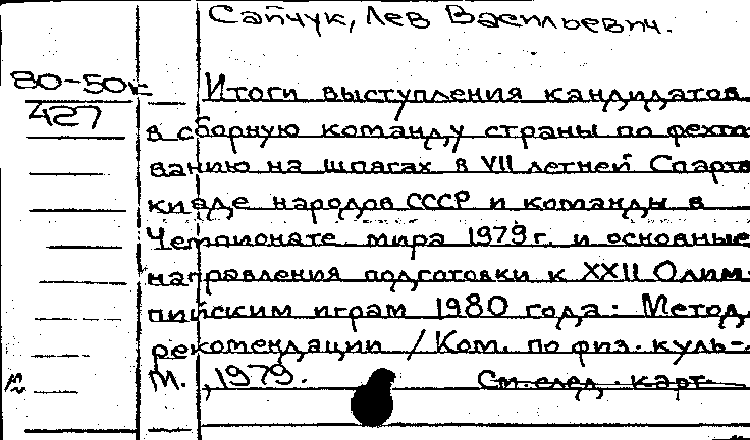 Сайчук, Лев Васильевич.
80-50к Итоги выступления кандидатов
427
в сборную команду страны по фехто
ванию на шпагах в VII летней Спарта
киаде народов СССР и команды в
Чемпионате мира 1979 г. и основные
направления подготовки к XXII Олим-
пийским играм 1980 года: Метод.
рекомендации / Ком. по физ. куль-
М., 1979. См. след. карт.